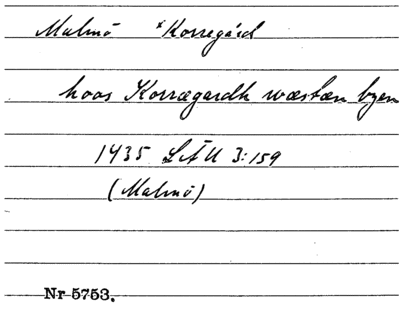 Malmö *Korregård
hoos Korrægardh wæstæn byen
1435 LÄU 3:159
(Malmö)
Nr 5753.